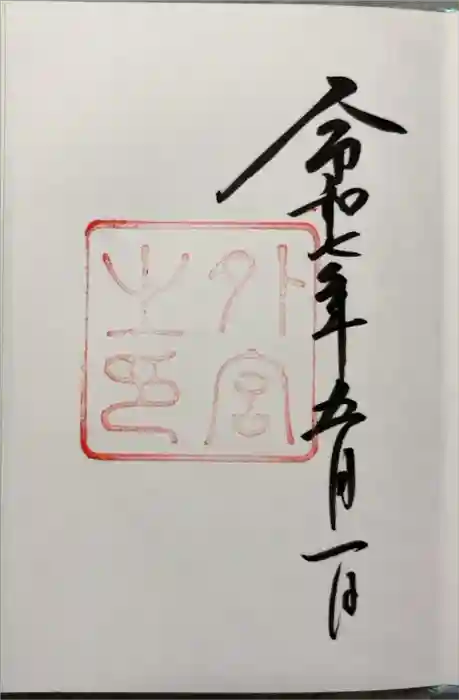 令和七年五月一日
外宮
之印